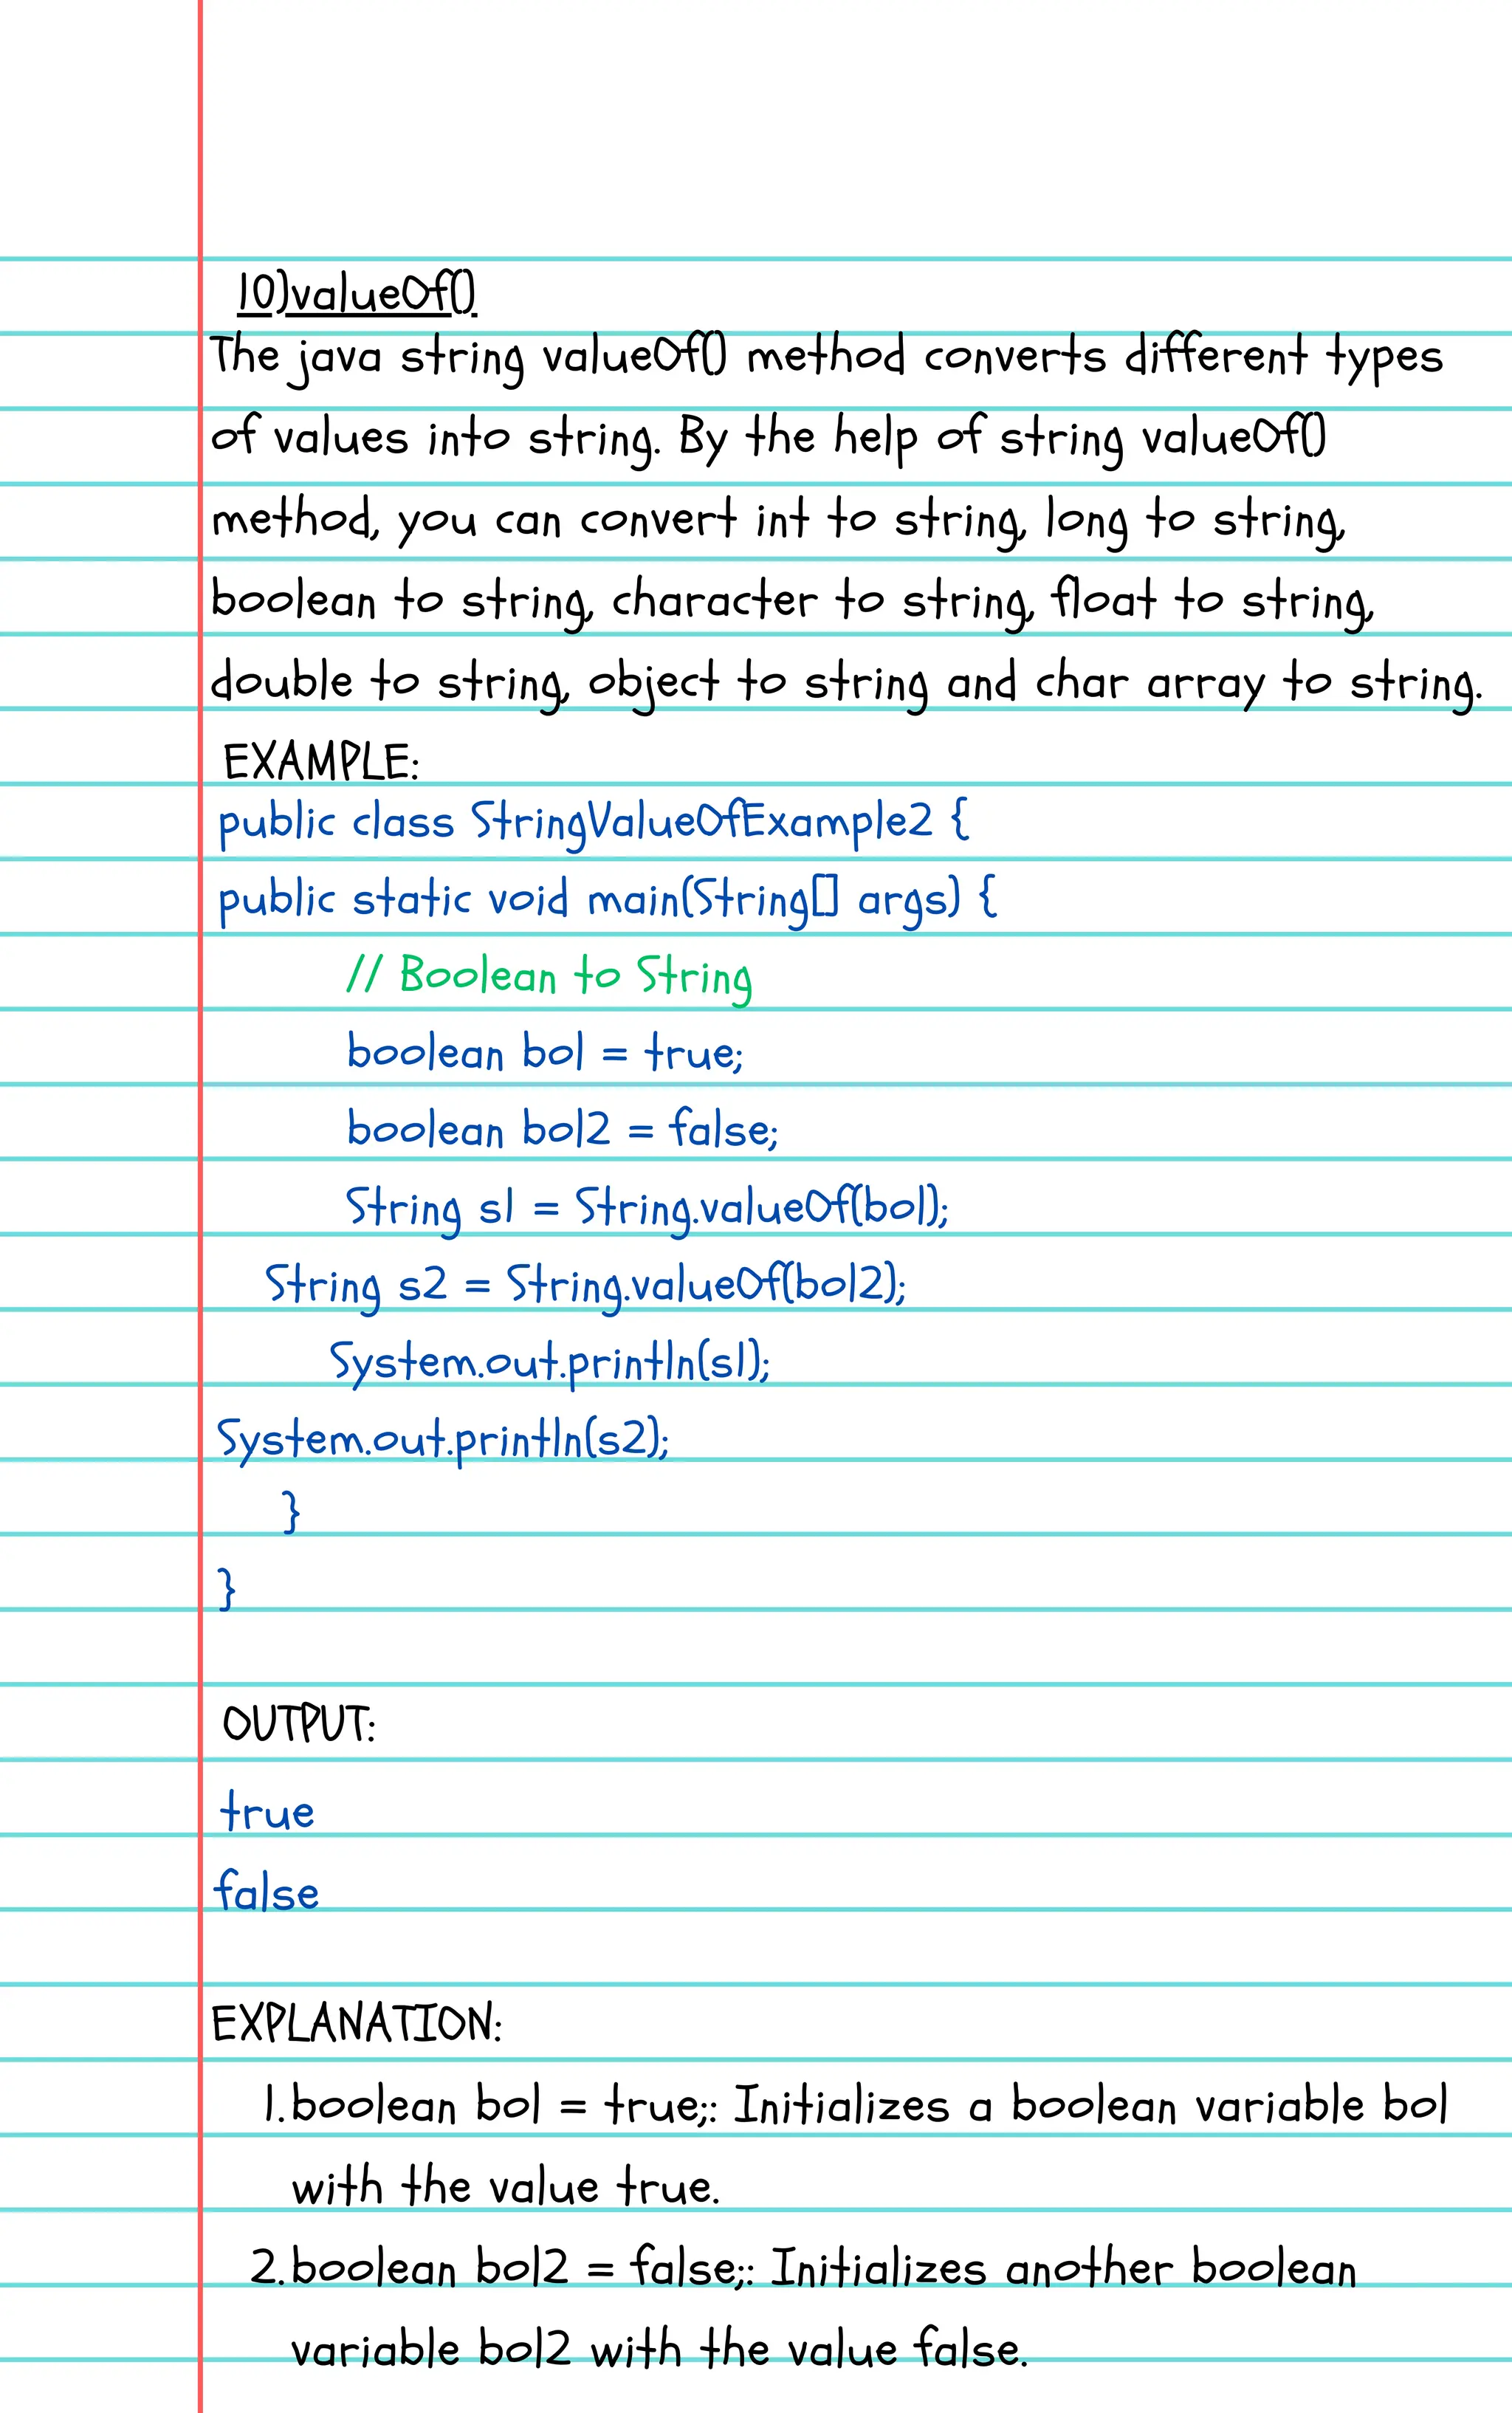 10)valueOf()
The java string valueOf() method converts different types
of values into string. By the help of string valueOf()
method, you can convert int to string, long to string,
boolean to string, character to string, float to string,
double to string, object to string and char array to string.
EXAMPLE:
public class StringValueOfExample2 {
public static void main(String[] args) {
// Boolean to String
boolean bol = true;
boolean bol2 = false;
String s1 = String.valueOf(bol);
String s2 = String.valueOf(bol2);
System.out.println(s1);
System.out.println(s2);
}
}
OUTPUT:
true
false
EXPLANATION:
1. boolean bol = true;: Initializes a boolean variable bol
with the value true.
2. boolean bol2 = false;: Initializes another boolean
variable bol2 with the value false.